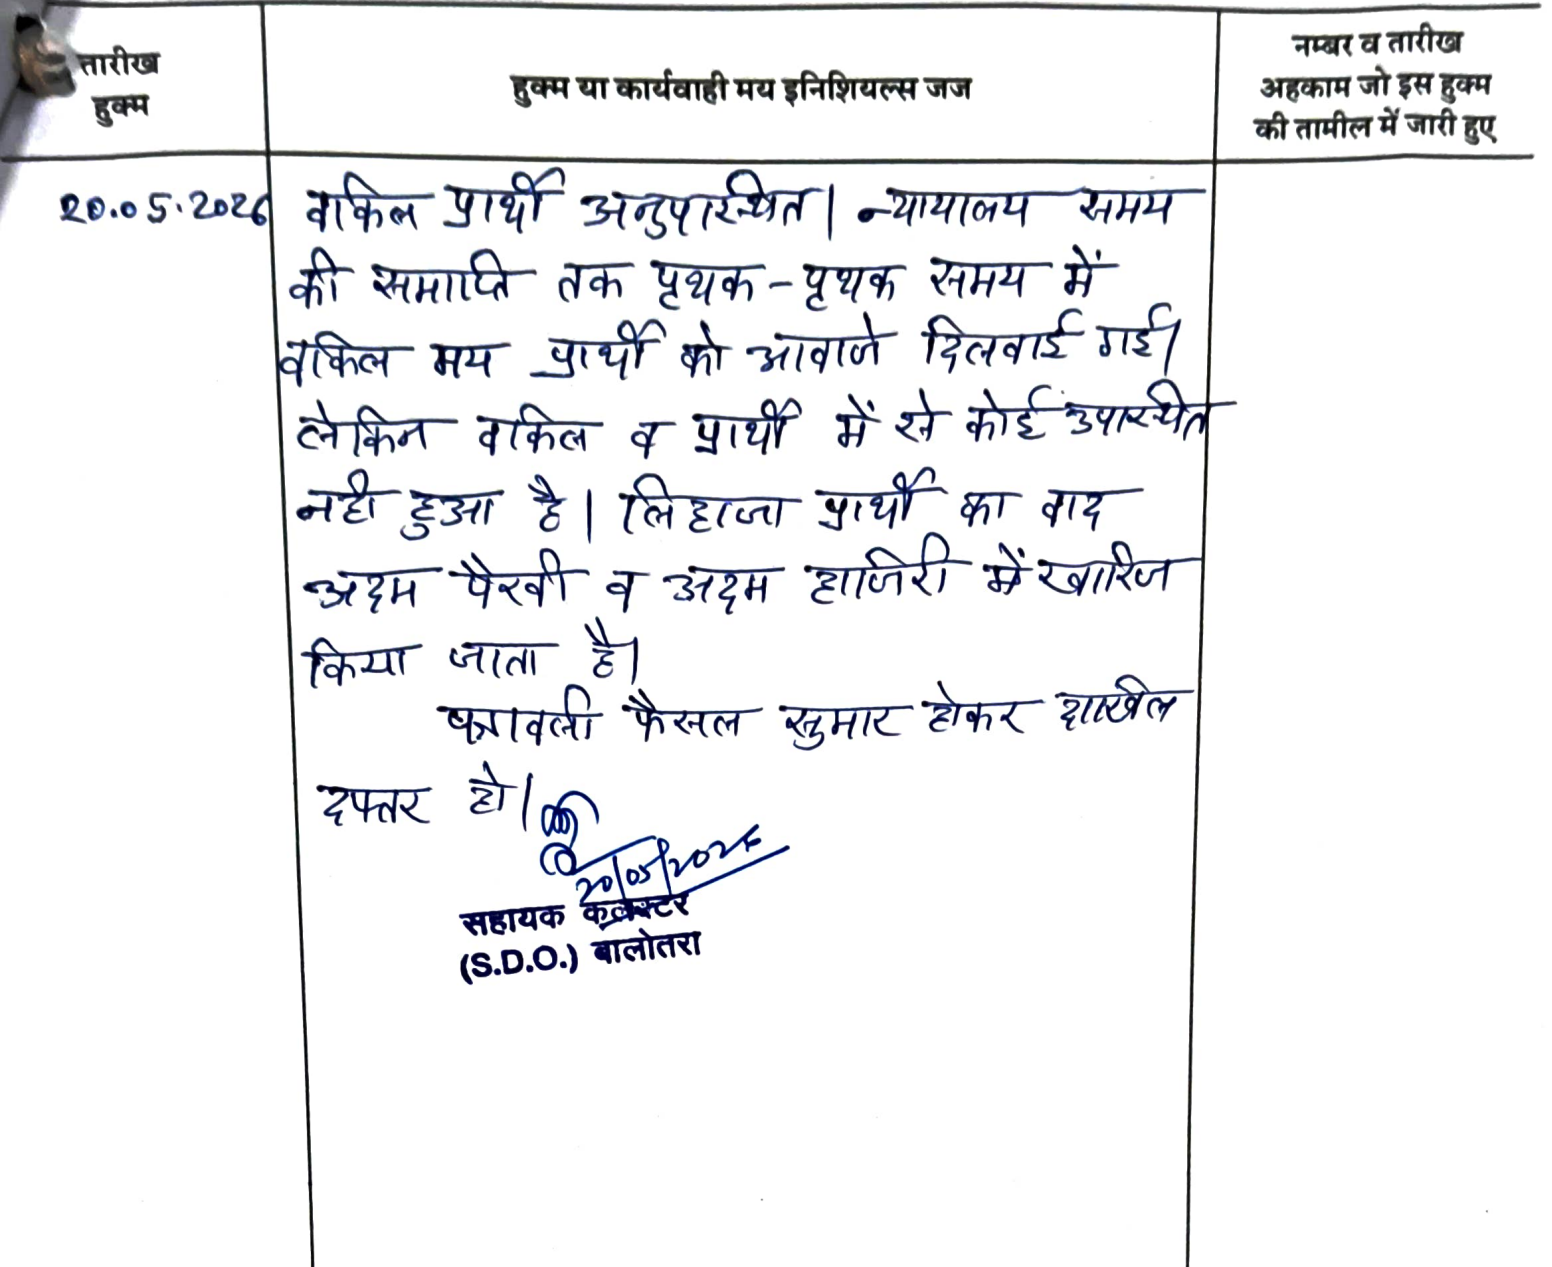 तारीख
हुक्म
हुक्म या कार्यवाही मय इनिशियल्स जज
नम्बर व तारीख
अहकाम जो इस हुक्म
की तामील में जारी हुए
20.05.2026
वकिल प्रार्थी अनुपस्थित। न्यायालय समय
की समाप्ति तक पृथक-पृथक समय में
वकिल मय प्रार्थी को आवाजे दिलवाई गई।
लेकिन वकिल व प्रार्थी में से कोई उपस्थित
नही हुआ है। लिहाजा प्रार्थी का वाद
अदम पैरवी व अदम हाजिरी में खारिज
किया जाता है।
पत्रावली फैसल सुमार होकर दाखिल
दफ्तर हो।
20/05/2026
सहायक कलक्टर
(S.D.O.) बालोतरा